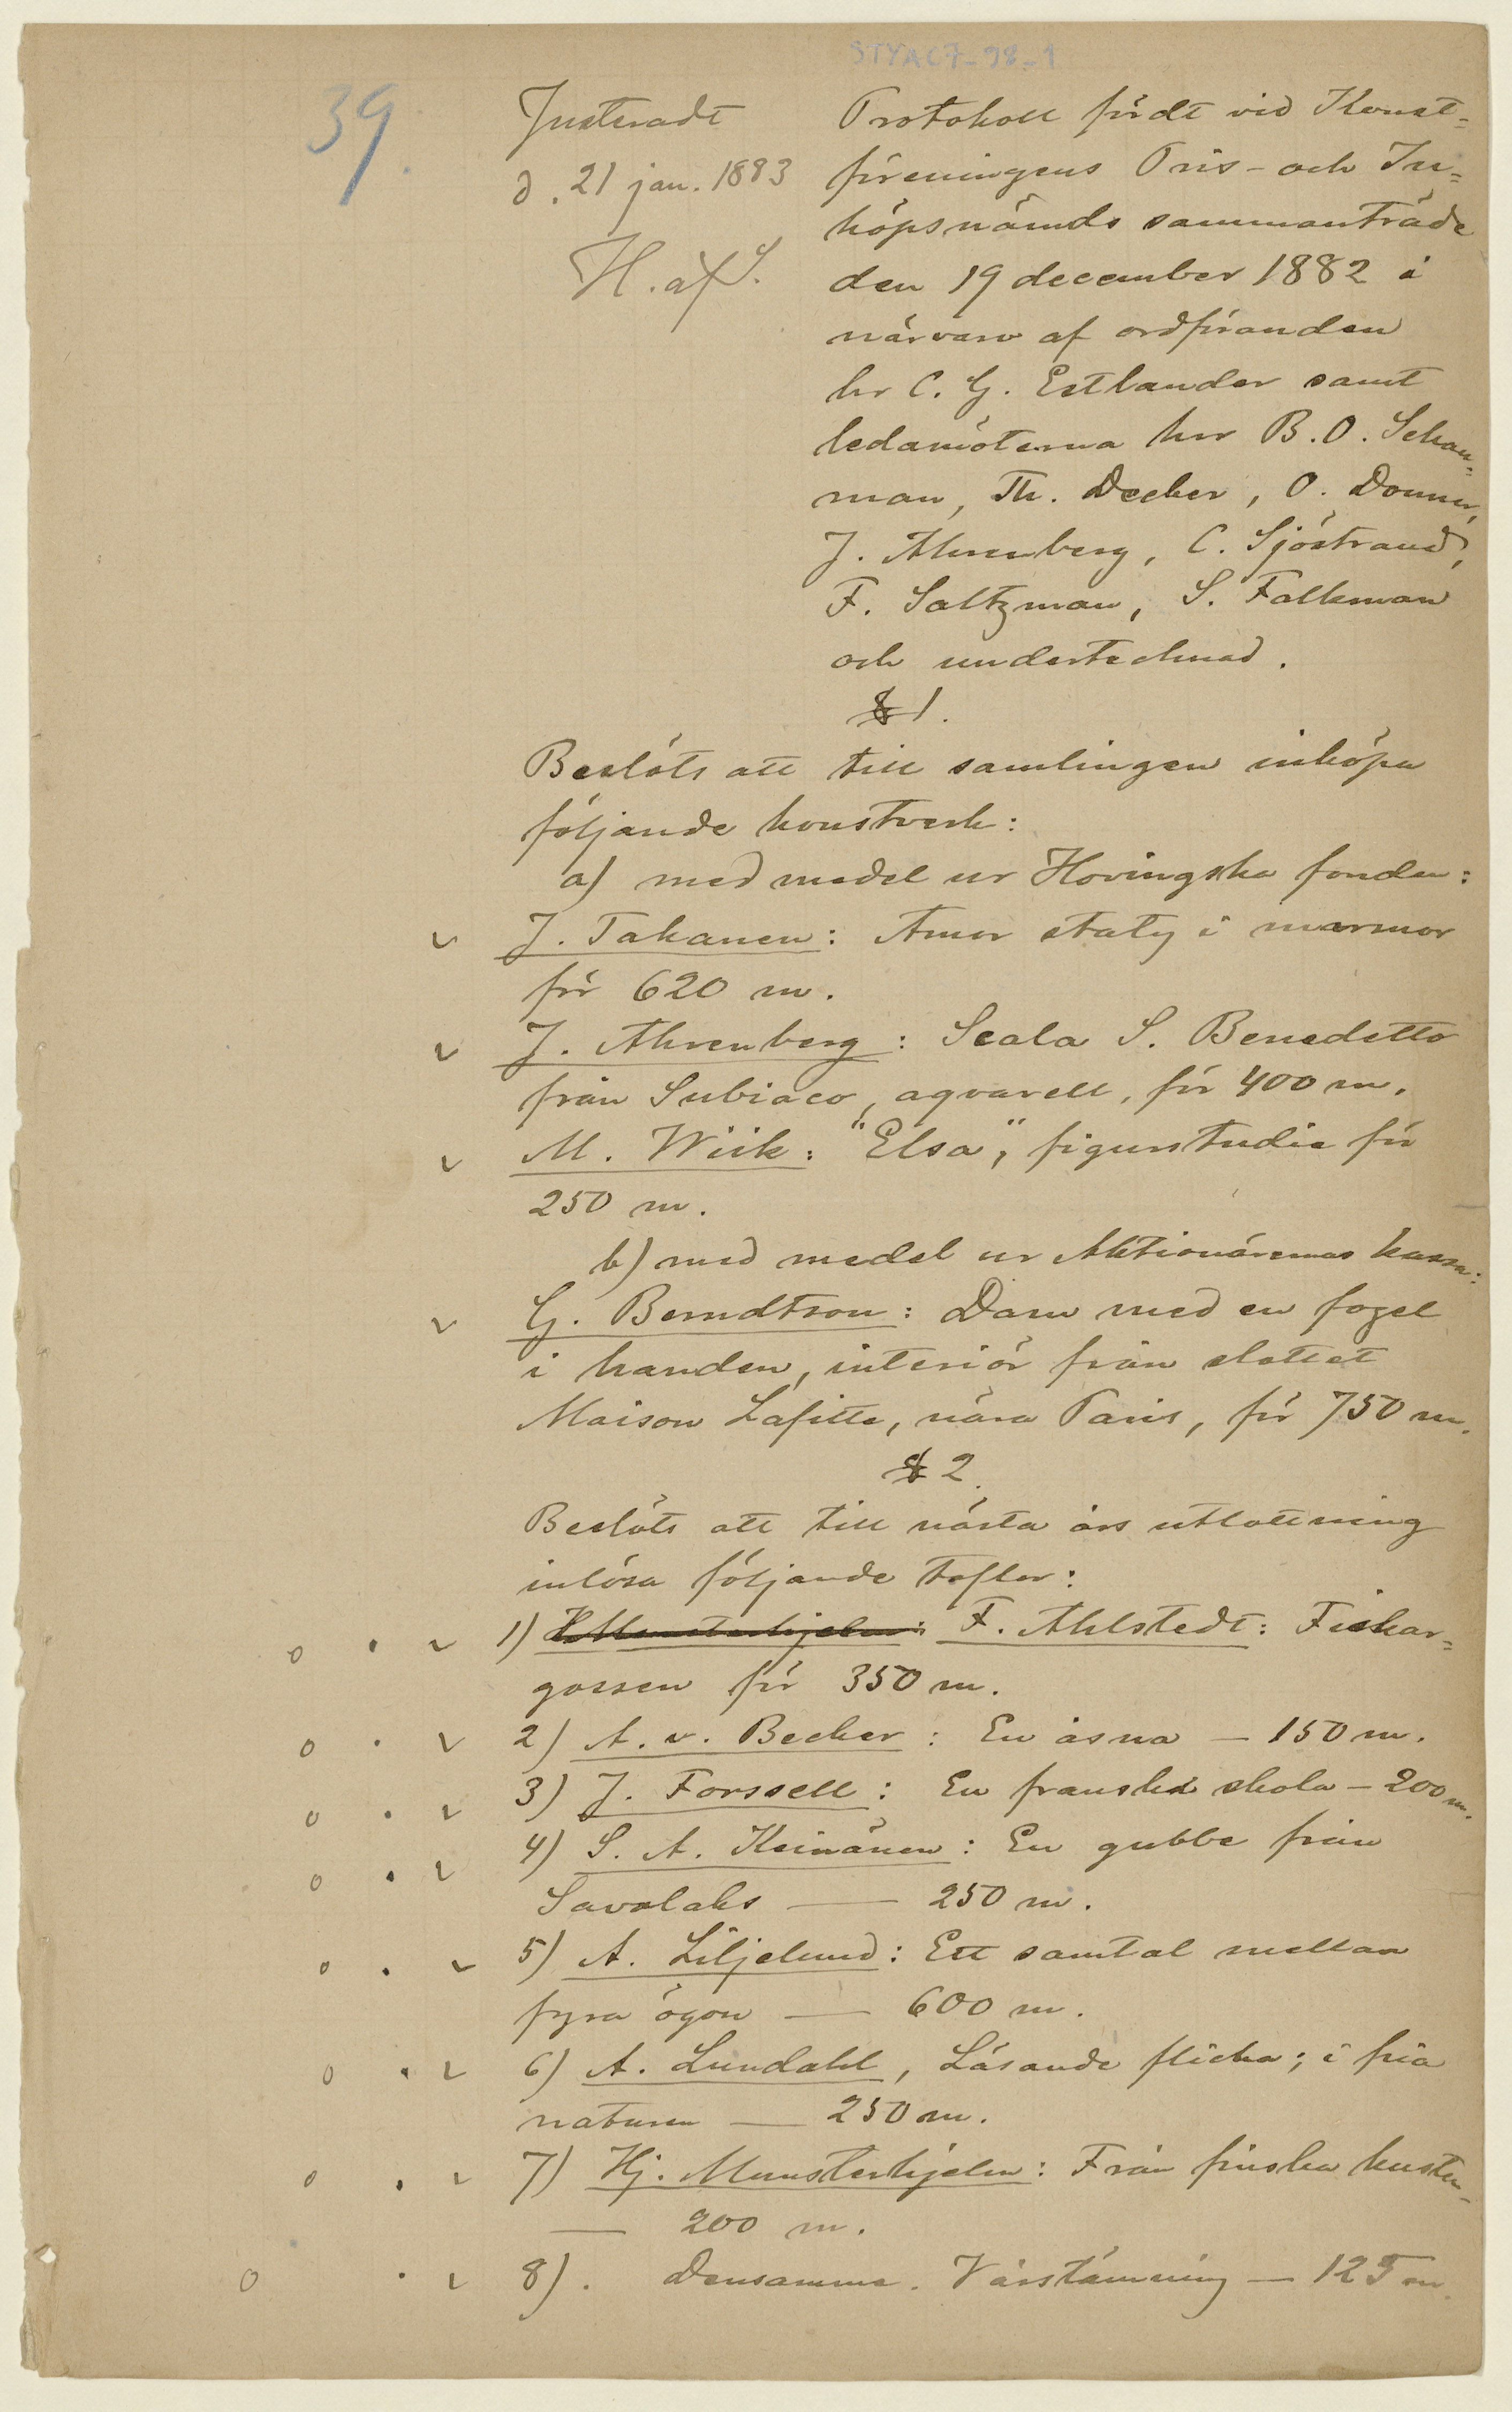 STYAC7-98-1
39.
Justeradt
d. 21 jan. 1883
H. af S.
Protokoll fördt vid Konst=
föreningens Pris- och In=
köpsnämds sammanträde
den 19 december 1882 i
närvaro af ordföranden
hr C. G. Estlander samt
ledamöterna hrr B. O. Schau=
man, Th. Decker, O. Donner,
J. Ahrenberg, C. Sjöstrand,
F. Saltzman, S. Falkman
och undertecknad.
§ 1.
Beslöts att till samlingen inköpa
följande konstverk:
a) med medel ur Hovingska fonden:
J. Takanen: Amor staty i marmor
för 620 m.
J. Ahrenberg: Scala S. Benedetto
från Subiaco, aqvarell, för 400 m.
M. Wiik: "Elsa", figurstudie för
250 m.
b) med medel ur Aktionärernas kassa:
G. Berndtson: Dam med en fogel
i handen, interiör från slottet
Maison Lafitte, nära Paris, för 750 m.
§ 2.
Beslöts att till nästa års utlottning
inlösa följande taflor:
1) H. Munsterhjelm: F. Ahlstedt: Fiskar=
gossen för 350 m.
2) A. v. Becker: En åsna — 150 m.
3) J. Forssell: En franska skola — 200 m.
4) S. A. Keinänen: En gubbe från
Savolaks — 250 m.
5) A. Liljelund: Ett samtal mellan
fyra ögon — 600 m.
6) A. Lundahl, Läsande flicka; i fria
naturen — 250 m.
7) Hj. Munsterhjelm: Från finska kusten
— 200 m.
8). Densamme. Vårstämning — 125 m.